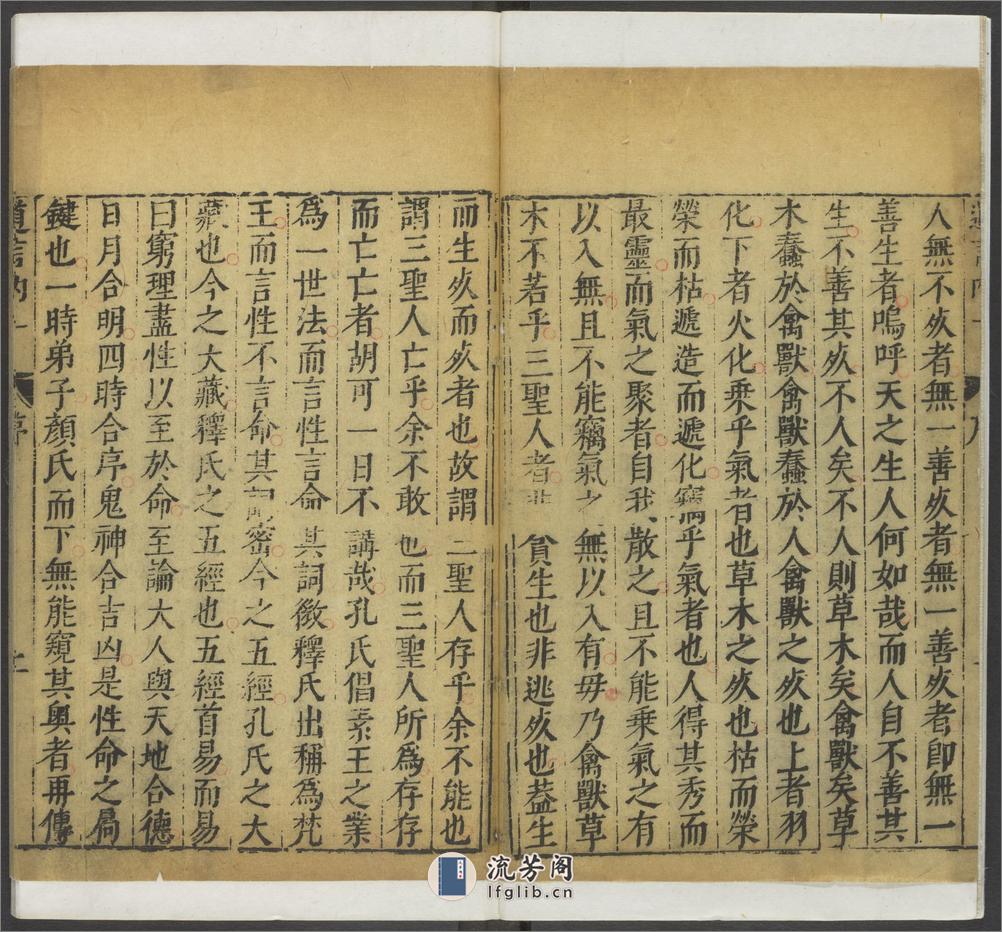 人無不死者無一善死者無一善死者即無一
善生者嗚呼天之生人何如哉而人自不善其
生不善其死不人矣不人則草木矣禽獸矣草
木蠢於禽獸禽獸蠢於人禽獸之死也上者羽
化下者火化乘乎氣者也草木之死也枯而榮
榮而枯遞造而遞化竊乎氣者也人得其秀而
最靈而氣之聚者自我散之且不能乘氣之有
以入無且不能竊氣之無以入有毋乃禽獸草
木不若乎三聖人者非貪生也非逃死也葢生
而生死而死者也故謂三聖人存乎余不能也
謂三聖人亡乎余不敢也而三聖人所爲存存
而亡亡者胡可一日不講哉孔氏倡素王之業
爲一世法而言性言命其詞微釋氏出稱爲梵
王而言性不言命其詞密今之五經孔氏之大
藏也今之大藏釋氏之五經也五經首易而易
曰窮理盡性以至於命至論大人與天地合德
日月合明四時合序鬼神合吉凶是性命之扃
鍵也一時弟子顏氏而下無能窺其奧者再傳
序
流芳阁
lfglib.cn